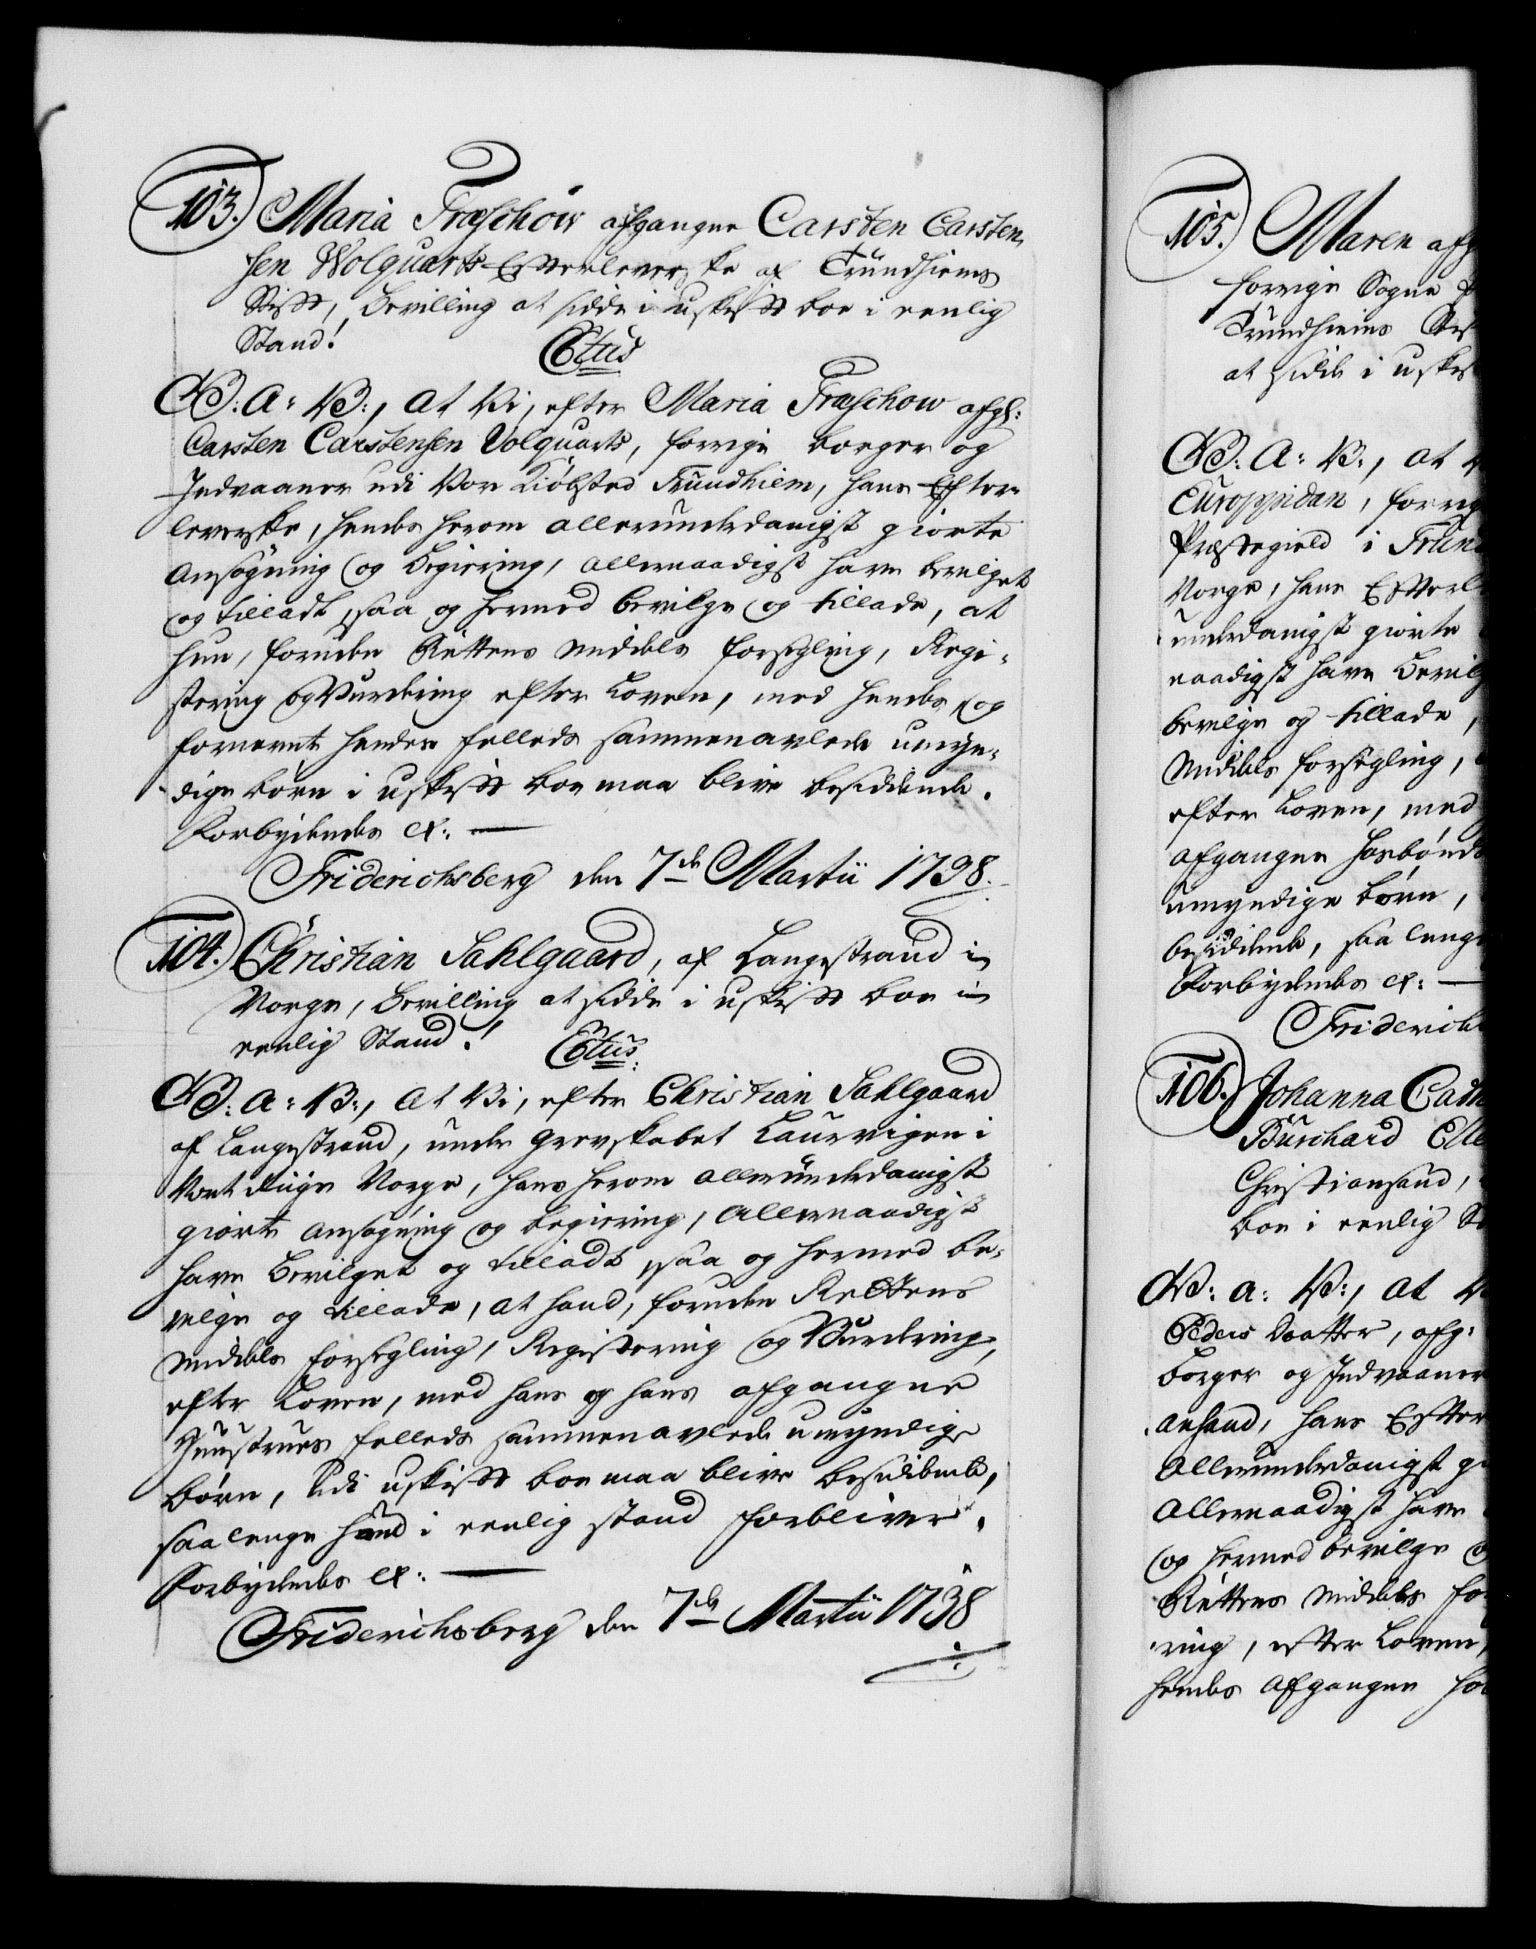 103. Maria Fraschow afgangne Carsten Carsten
sen Wolquarts Efterleverske af Trundhiems
Stift, Bevilling at sidde i uskift boe i eenlig
Stand!
C6tus
G. V: A: V:, At Vi, efter Maria Fraschow afgl:
Carsten Carstensen Volquarts, forrige borger og
Indvaaner udi Vor Kiøbsted Trundhiem, hans Efter-
leverske, hendes herom allerunderdanigst giorte
Ansøgning og Begiering, allernaadigst have bevilget
og tilladt, saa og hermed bevilge og tillade, at
hun, foruden Rettens Middels forsegling, Regi-
stering og Vurdering efter Loven, med hendes og
fornevnte hendes felleds sammenavlede umyn-
dige børn i uskift boe maa blive besiddende.
Forbydendes etc: —
Friderichsberg den 7de Martii 1738.
104. Christian Sahlgaard, af Langestrand i
Norge, Bevilling at sidde i uskift boe i
eenlig Stand!
G. V: A: V:, At Vi, efter Christian Sahlgaard
af Langestrand, under Grevskabet Laurvigen i
Vort Riige Norge, hans herom allerunderdanigst
giorte Ansøgning og begiering, Allernaadigst
have bevilget og tilladt, saa og hermed be-
vilge og tillade, at hand, foruden Rettens
Middels forsegling, Registering og Vurdering,
efter Loven, med hans og hans afgangne
Huustrues felleds sammenavlede umyndige
børn, udi uskift boe maa blive besiddende,
saa lenge hand i eenlig stand forbliver.
Forbydendes etc: —
Friderichsberg den 7de Martii 1738
105. Maren afg
forrige Sogne
Trundhiems Stif
at sidde i uskif
G. V: A: V:, At V
Europpidan, forrig
Præstegield i Trun
Norge, hans Efterl
underdanigst giorte
naadigst have Bevilg
bevilge og tillade,
Middels forsegling,
efter Loven, med
afgangne Hosbonds
umyndige børn,
besiddende, saa lenge
Forbydendes etc: —
Friderich
106. Johanna Cath
Burchard Elle
Christiansand,
boe i eenlig St
G. V: A: V:, At V
Peders Daatter, afg:
borger og Indvaaner
ansand, hans Efter
Allerunderdanigst gi
Allernaadigst have
og hermed bevilge o
Rettens Middels fo
ring, efter Loven,
hendes afgangne Hos